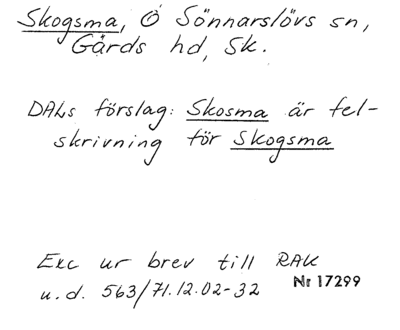 Skogsma, Ö Sönnarslövs sn,
Gärds hd, Sk.
DALs förslag: Skosma är fel-
skrivning för Skogsma
Exc ur brev till RAK
u.d. 563/71.12.02-32 Nr 17299